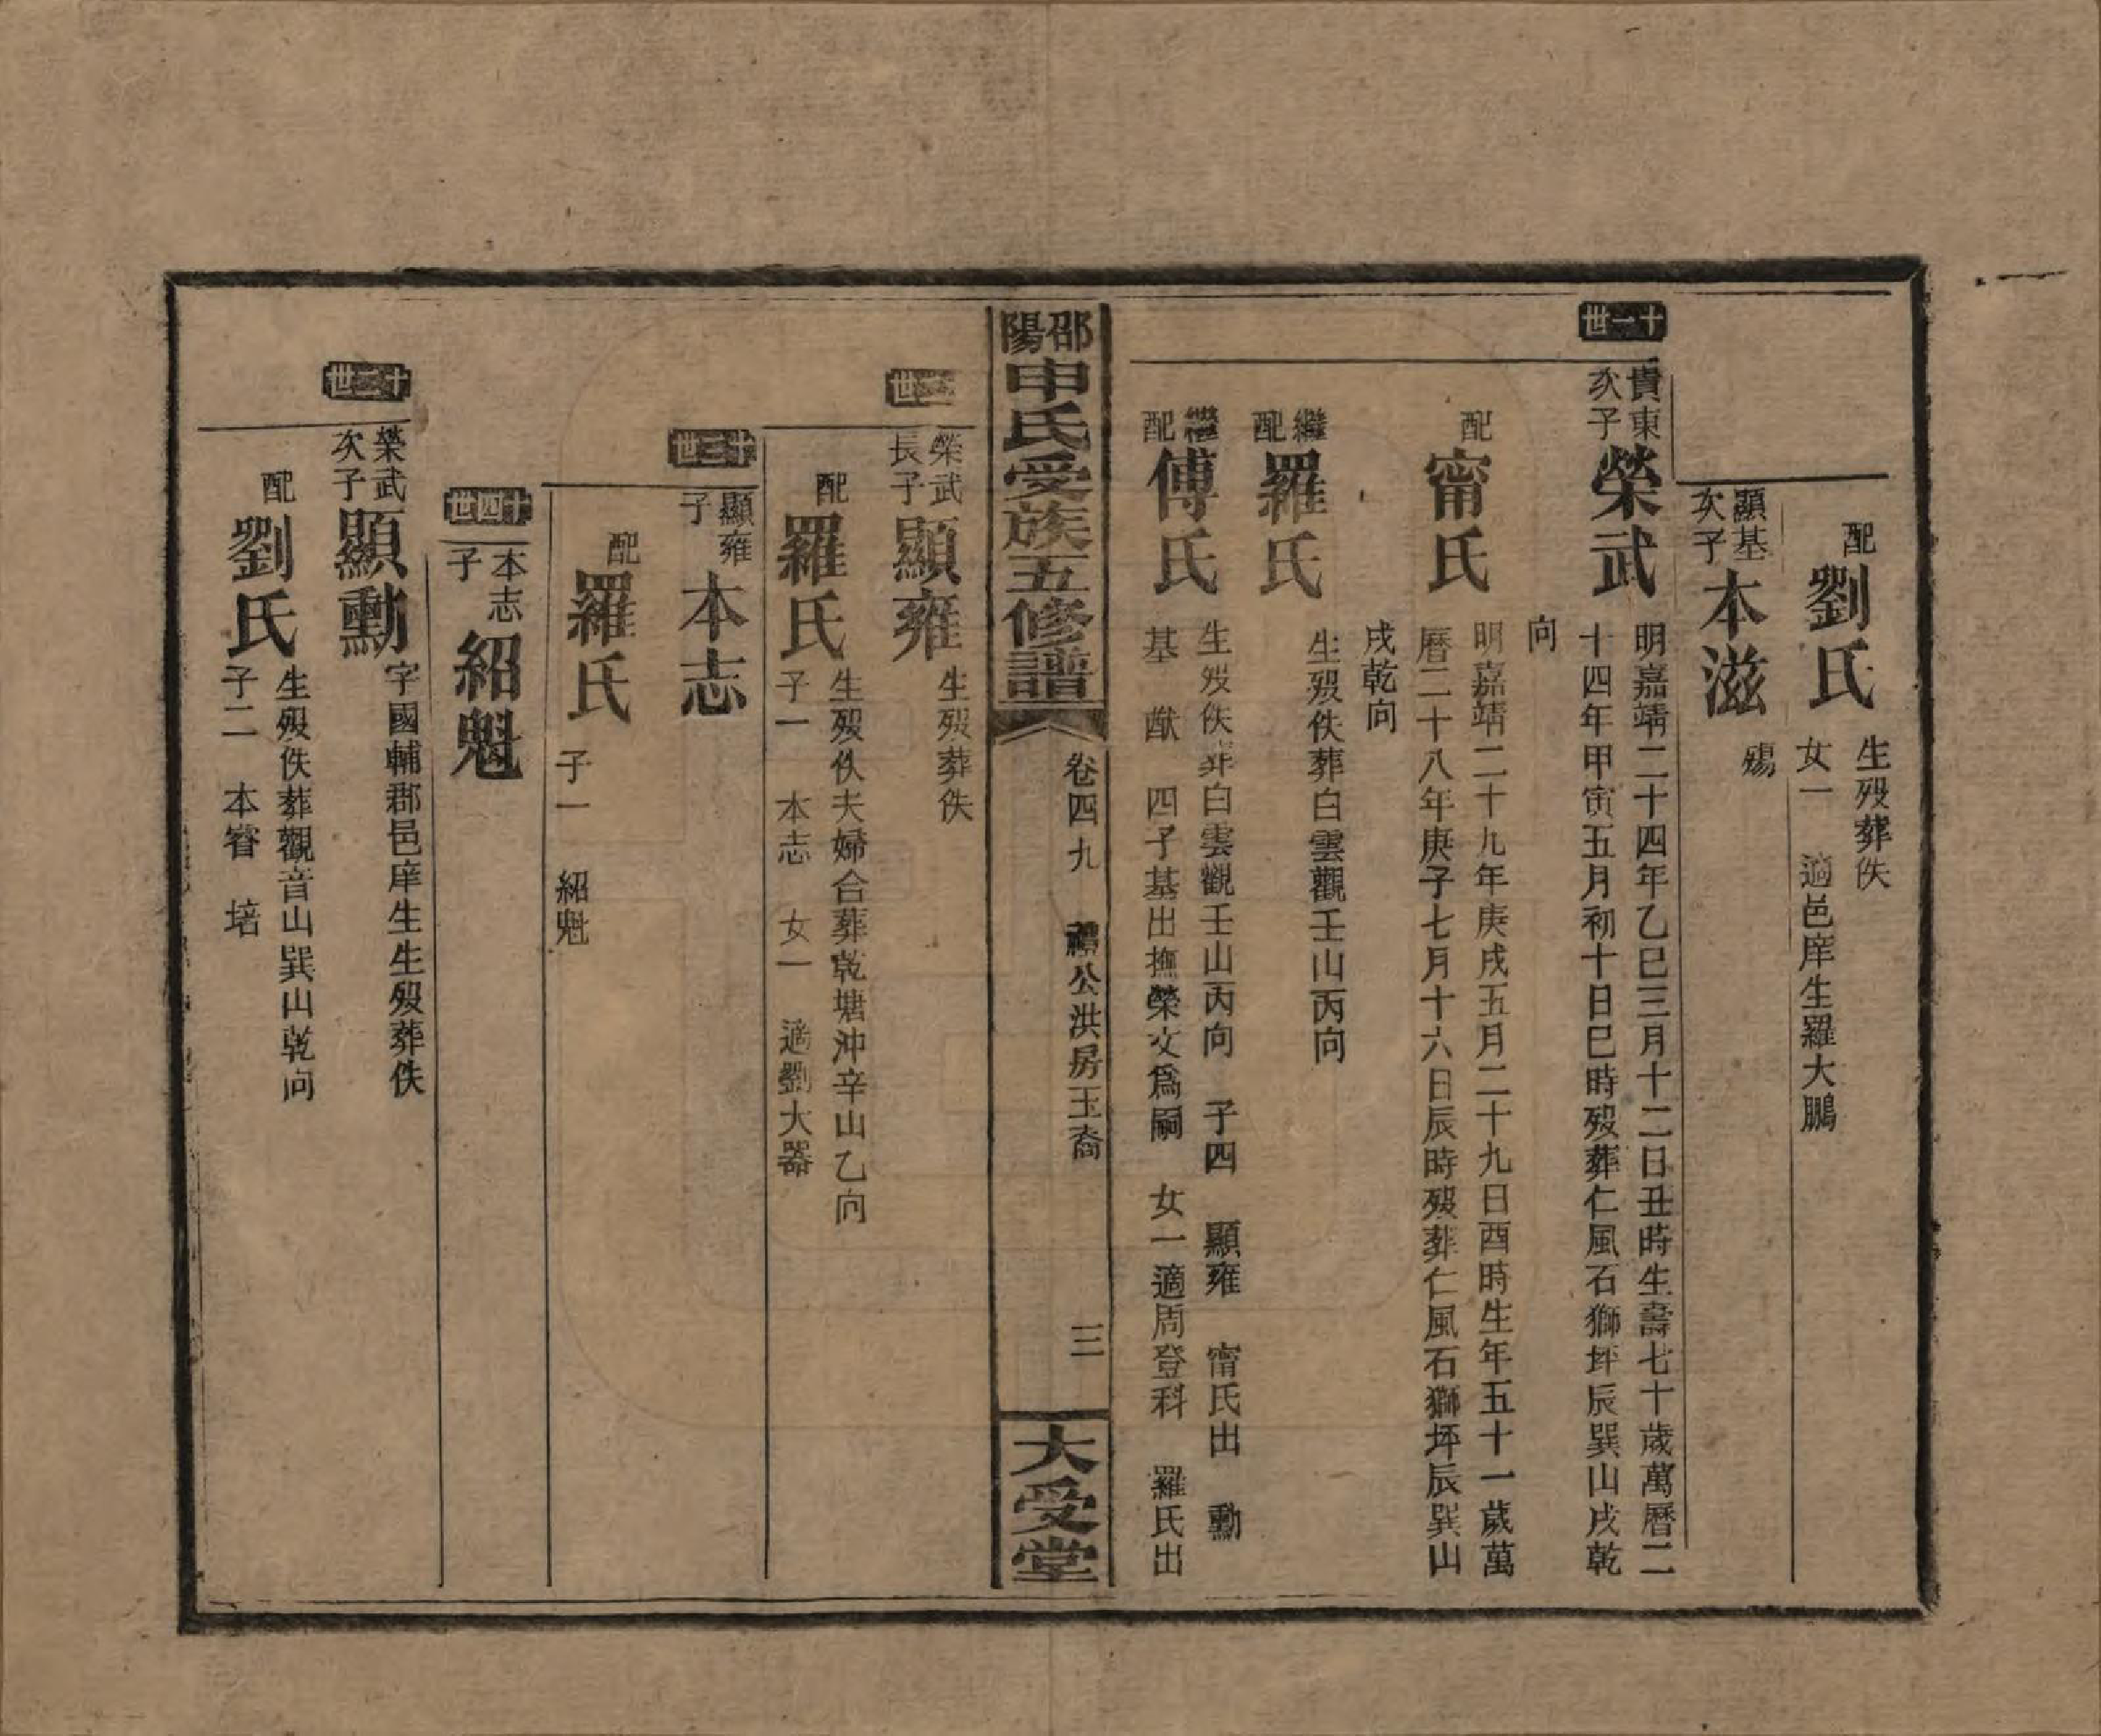 配
劉氏
生歿葬佚
女一　適邑庠生羅大鵬
顯基
次子
本滋
殤
十一世
貴東
次子
榮武
明嘉靖二十四年乙巳三月十二日丑時生壽七十歲萬曆二
十四年甲寅五月初十日巳時歿葬仁風石獅坪辰巽山戌乾
向
配
甯氏
明嘉靖二十九年庚戌五月二十九日酉時生年五十一歲萬
曆二十八年庚子七月十六日辰時歿葬仁風石獅坪辰巽山
戌乾向
繼
配
羅氏
生歿佚葬白雲觀壬山丙向
繼
配
傅氏
生歿佚葬白雲觀壬山丙向　子四　顯雍　甯氏出　勳
基　猷　四子基出撫榮文爲嗣　女一適周登科　羅氏出
邵陽申氏受族五修譜
卷四九　禮公洪房玉裔
三
大受堂
十二世
榮武
長子
顯雍
生歿葬佚
配
羅氏
生歿佚夫婦合葬乾塘沖辛山乙向
子一　本志　女一　適劉大器
十三世
顯雍
子
本志
配
羅氏
子一　紹魁
十四世
本志
子
紹魁
十二世
榮武
次子
顯勳
字國輔郡邑庠生生歿葬佚
配
劉氏
生歿佚葬觀音山巽山乾向
子二　本睿　培